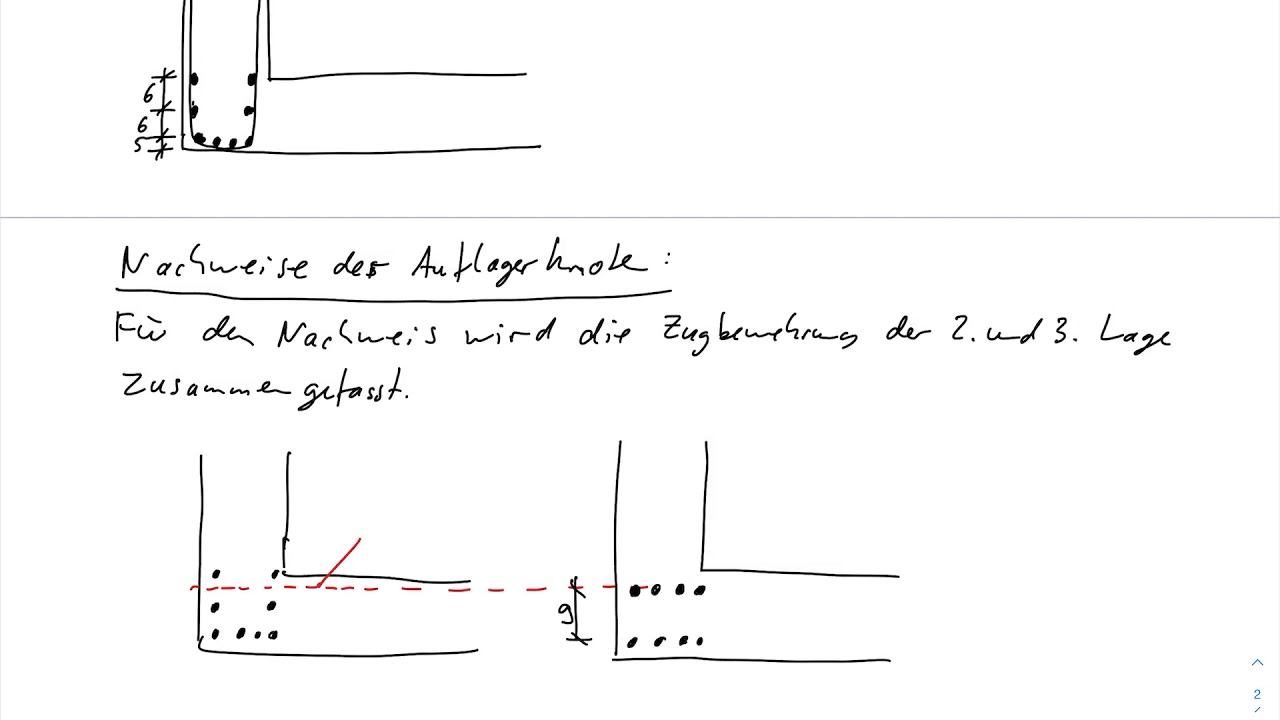 6
6
5
Nachweise des Auflagerknote :
Für den Nachweis wird die Zugbewehrung der 2. und 3. Lage
zusammengefasst.
9
2